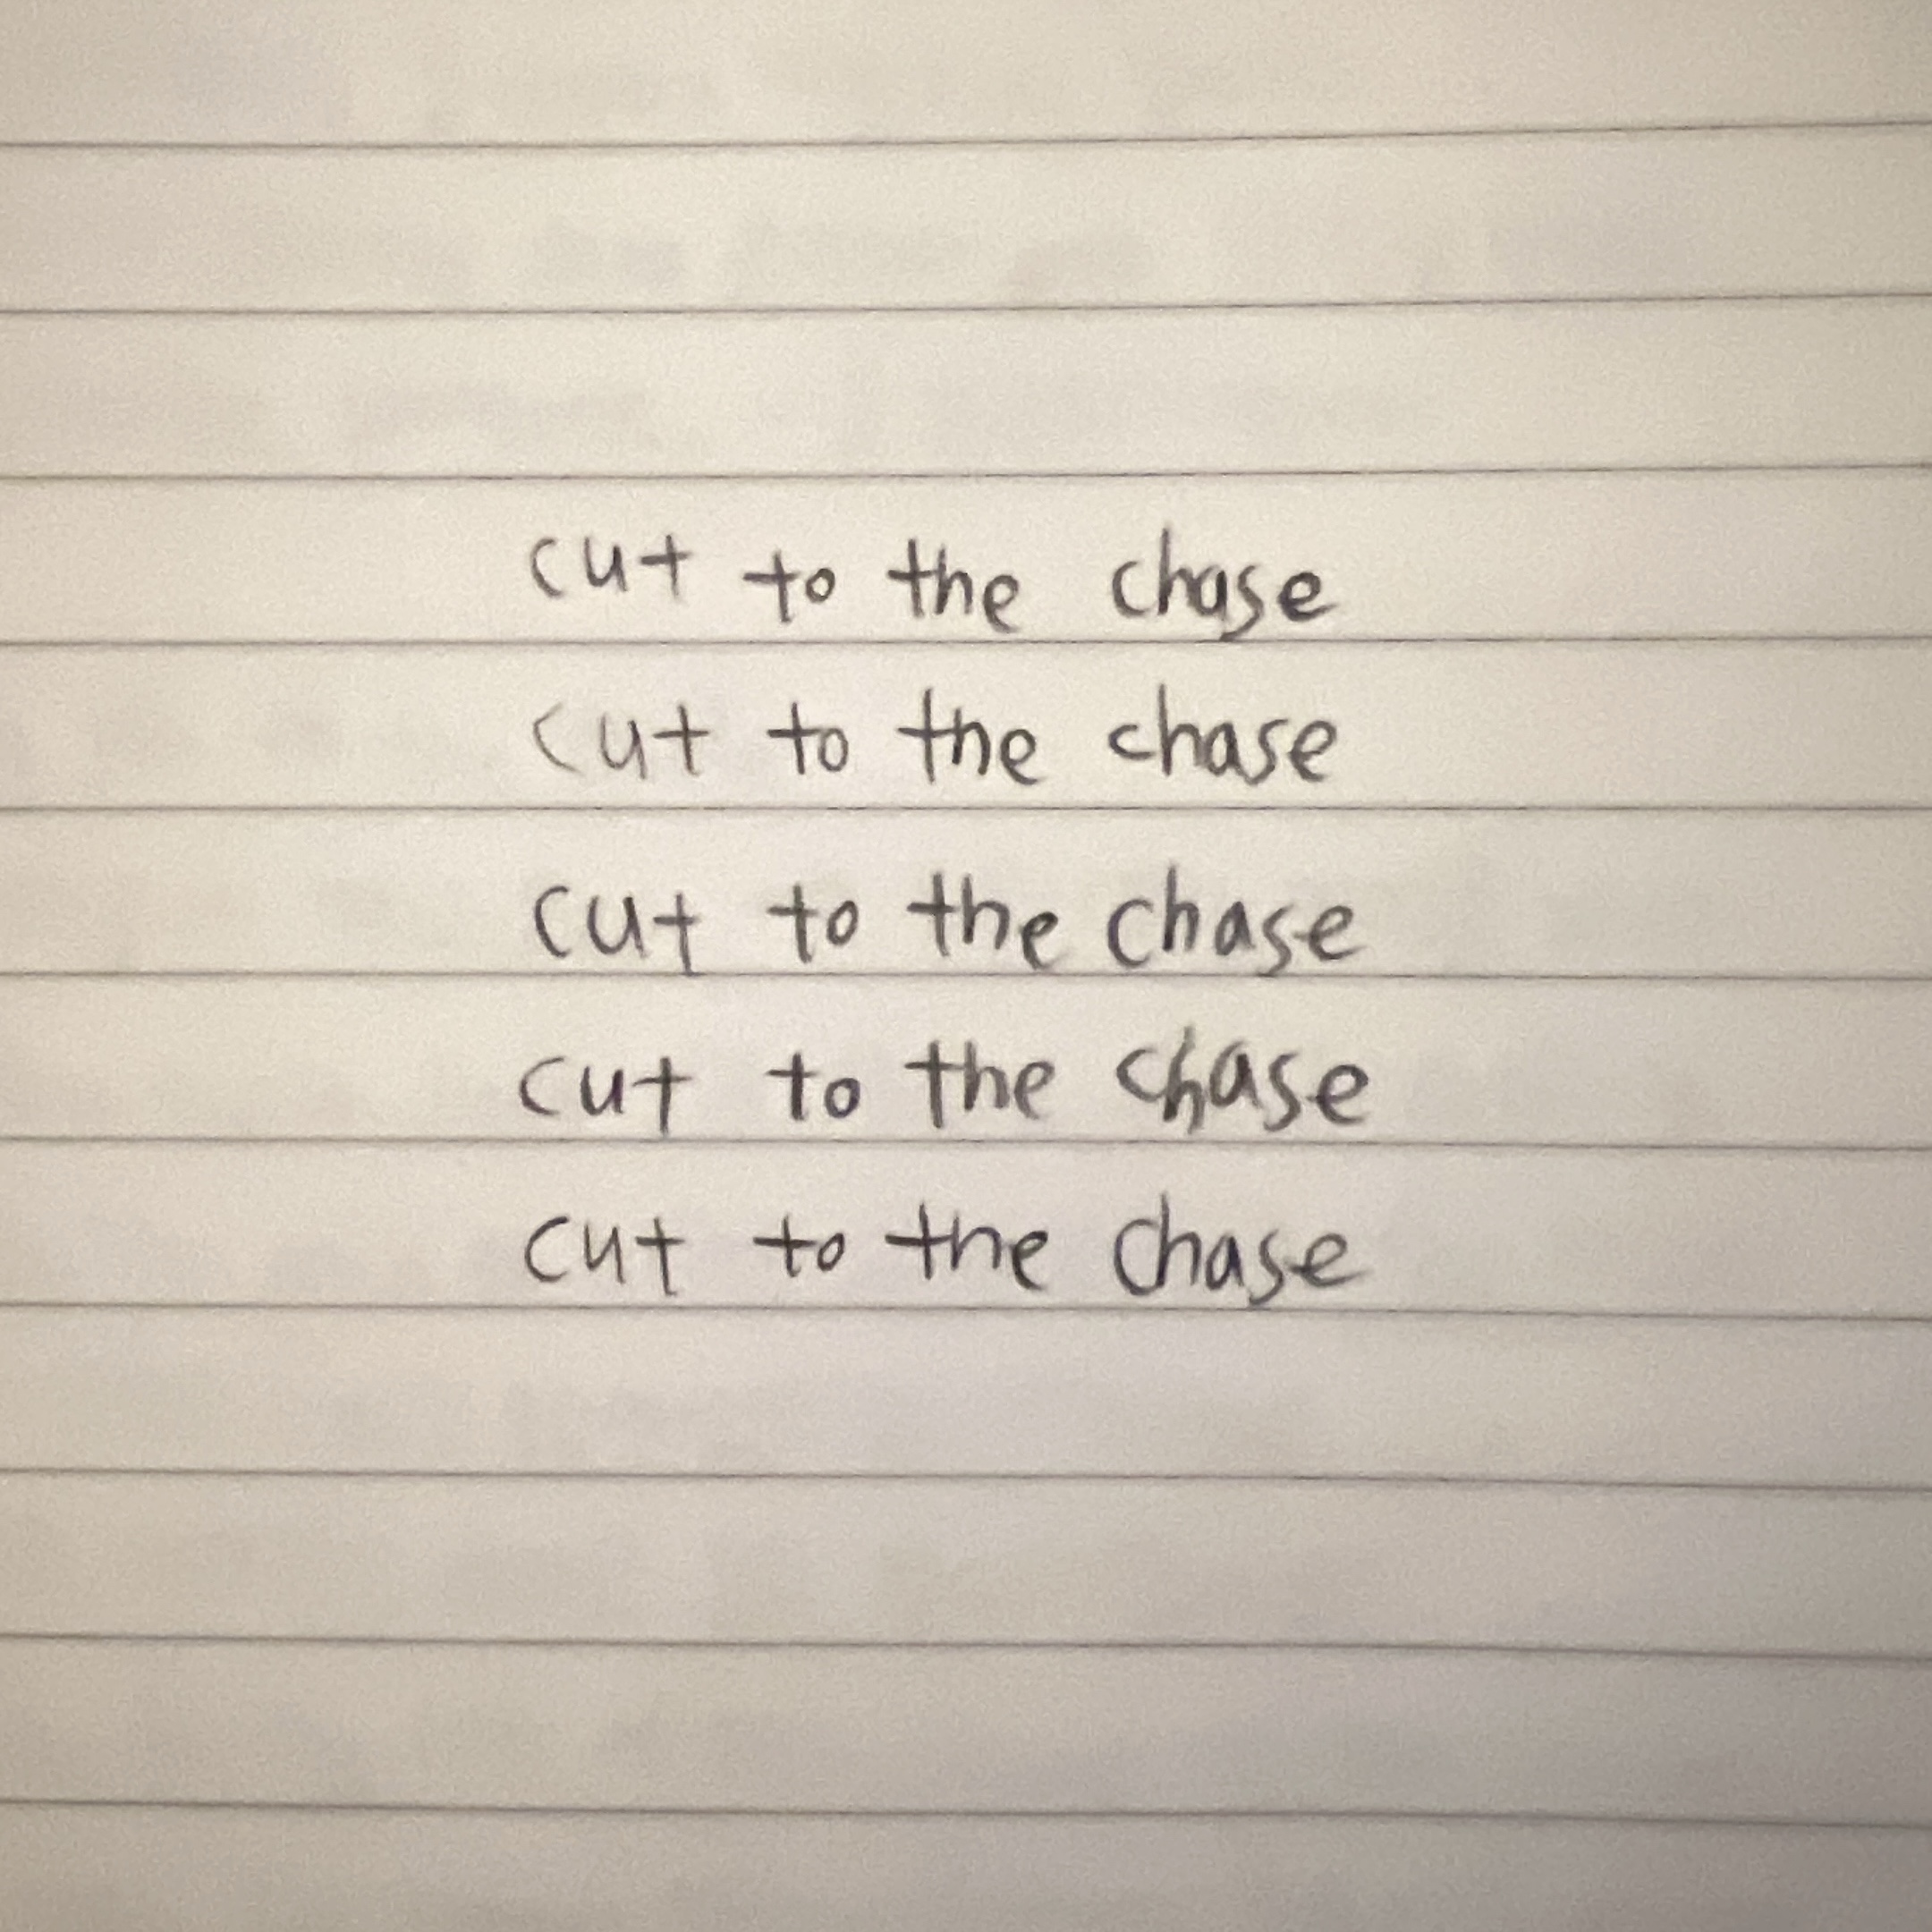 cut to the chase
cut to the chase
cut to the chase
cut to the chase
cut to the chase